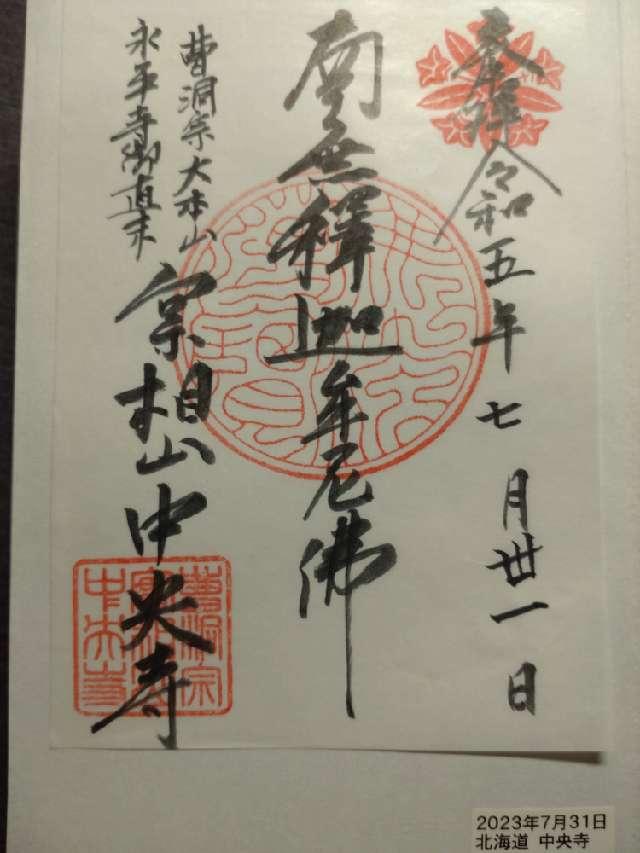 奉拝 令和五年七月丗一日
南無釋迦牟尼佛
曹洞宗大本山
永平寺御直末
相山中央寺
曹洞宗
中央寺
2023年7月31日
北海道 中央寺